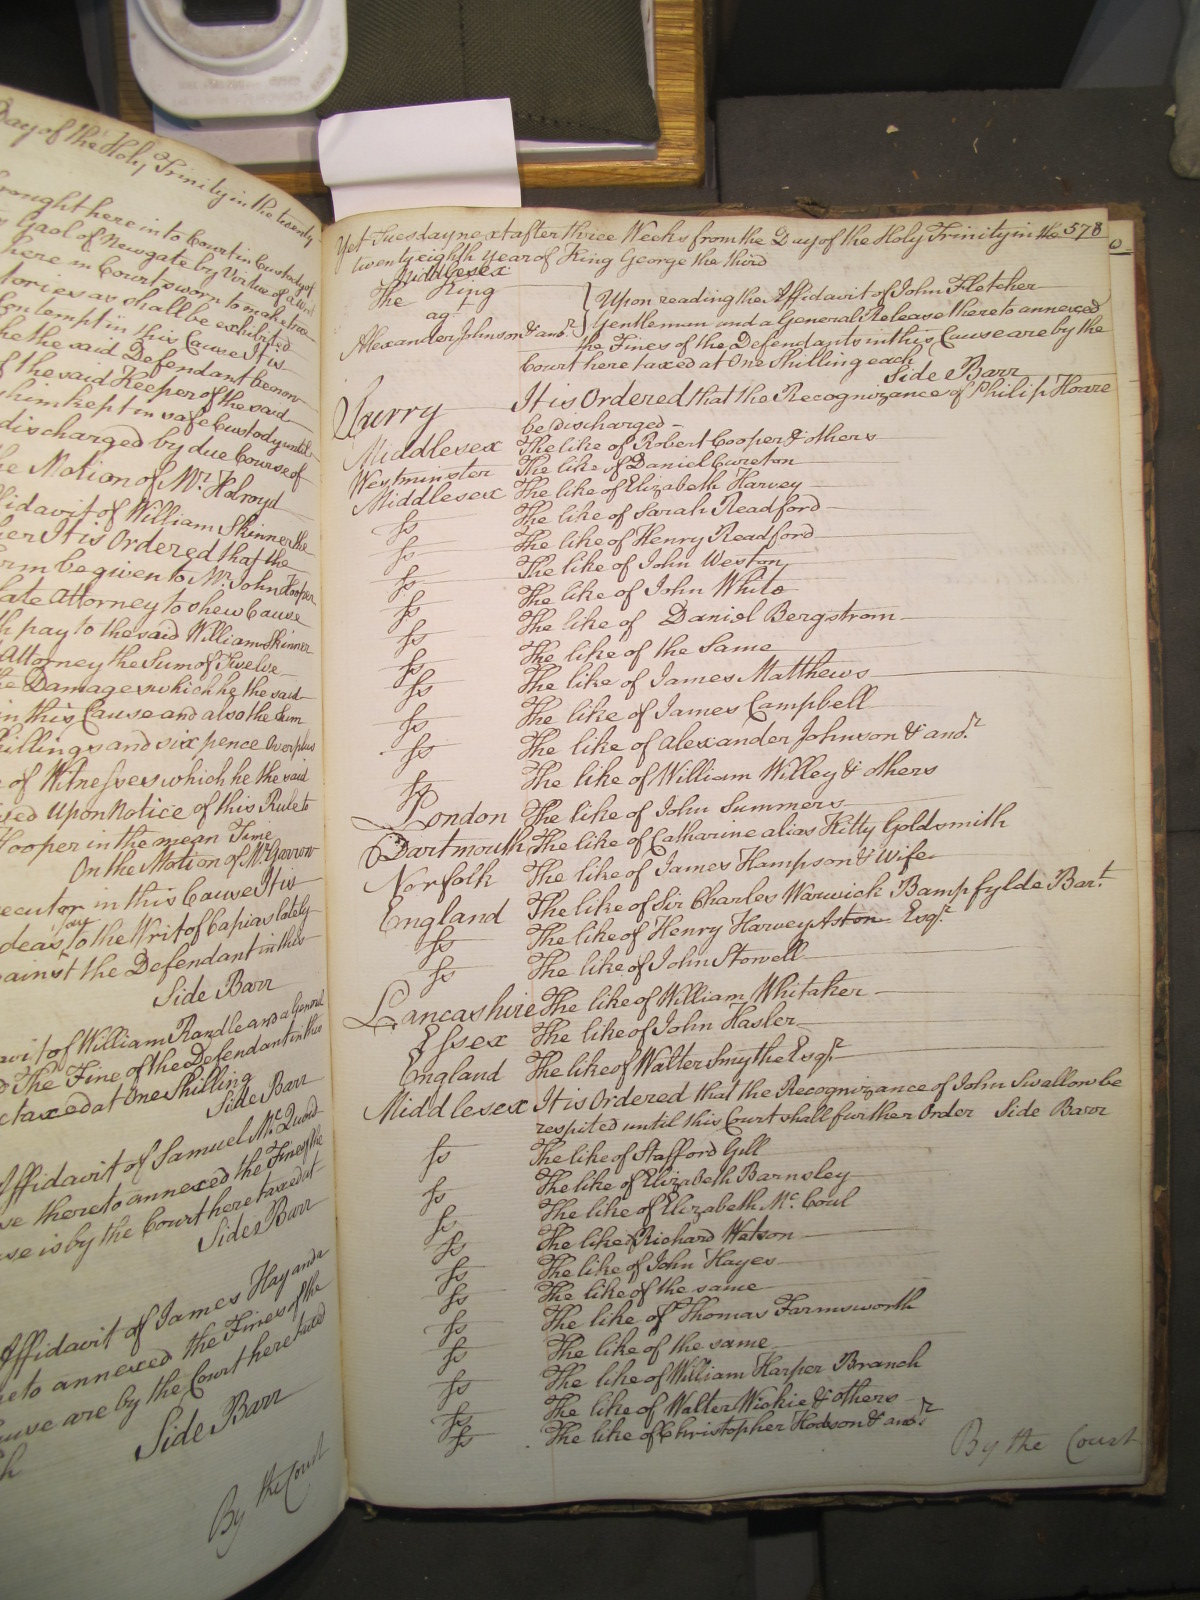 Day of the Holy Trinity in the twenty
brought here in to Court in Custody of
Gaol of Newgate by Virtue of a Writ
here in Court sworn to make true
tories as shall be exhibited
Contempt in this Cause It is
the said Defendant be now
of the said Keeper of the said
him kept in safe Custody until
discharged by due Course of
the Motion of Mr. Holroyd
Affidavit of William Skinner the
It is Ordered that the
be given to Mr. John Hooper
late Attorney to shew Cause
pay to the said William Skinner
Attorney the Sum of Twelve
the Damages which he the said
in this Cause and also the Sum
Shillings and six pence Overplus
of Witnesses which he the said
Upon Notice of this Rule to
Hooper in the mean Time
On the Motion of Mr. Garrow
in this Cause It is
to the Writ of Capias lately
against the Defendant in this
Side Barr
of William Randle and a General
The Fine of the Defendant in this
taxed at One Shilling
Side Barr
Affidavit of Samuel Mc. Quoid
thereto annexed the Fine of the
is by the Court here taxed at
Side Barr
Affidavit of James Hay and a
to annexed the Fines of the
Cause are by the Court here taxed
Side Barr
By the Court
Yet Tuesday next after three Weeks from the Day of the Holy Trinity in the 578
twenty eighth year of King George the third
Middlesex
The King
agt.
Alexander Johnson & anor.
Upon reading the Affidavit of John Fletcher
Gentleman and a General Release thereto annexed
the Fines of the Defendants in this Cause are by the
Court here taxed at One Shilling each
Side Barr
Surry It is Ordered that the Recognizance of Philip Hoare
be discharged
Middlesex The like of Robert Cooper & others
Westminster The like of Daniel Cureton
Middlesex The like of Elizabeth Harvey
ss The like of Sarah Readford
ss The like of Henry Readford
ss The like of John Weston
ss The like of John White
ss The like of Daniel Bergstrom
ss The like of the Same
ss The like of James Matthews
ss The like of James Campbell
ss The like of Alexander Johnson & anor.
ss The like of William Willey & others
London The like of John Summers
Dartmouth The like of Catharine alias Kitty Goldsmith
Norfolk The like of James Hampson & Wife
England The like of Sir Charles Warwick Bampfylde Bart.
ss The like of Henry Harvey Aston Esqr.
ss The like of John Stowell
Lancashire The like of William Whitaker
Essex The like of John Hasler
England The like of Walter Smythe Esqr.
Middlesex It is Ordered that the Recognizance of John Swallow be
respited until this Court shall further Order Side Barr
ss The like of Stafford Gill
ss The like of Elizabeth Barnsley
ss The like of Elizabeth Mc. Coul
ss The like of Richard Watson
ss The like of John Hayes
ss The like of the same
ss The like of Thomas Farmsworth
ss The like of the same
ss The like of William Harper Branch
ss The like of Walter Wickie & others
ss The like of Christopher Hodson & anor.
By the Court